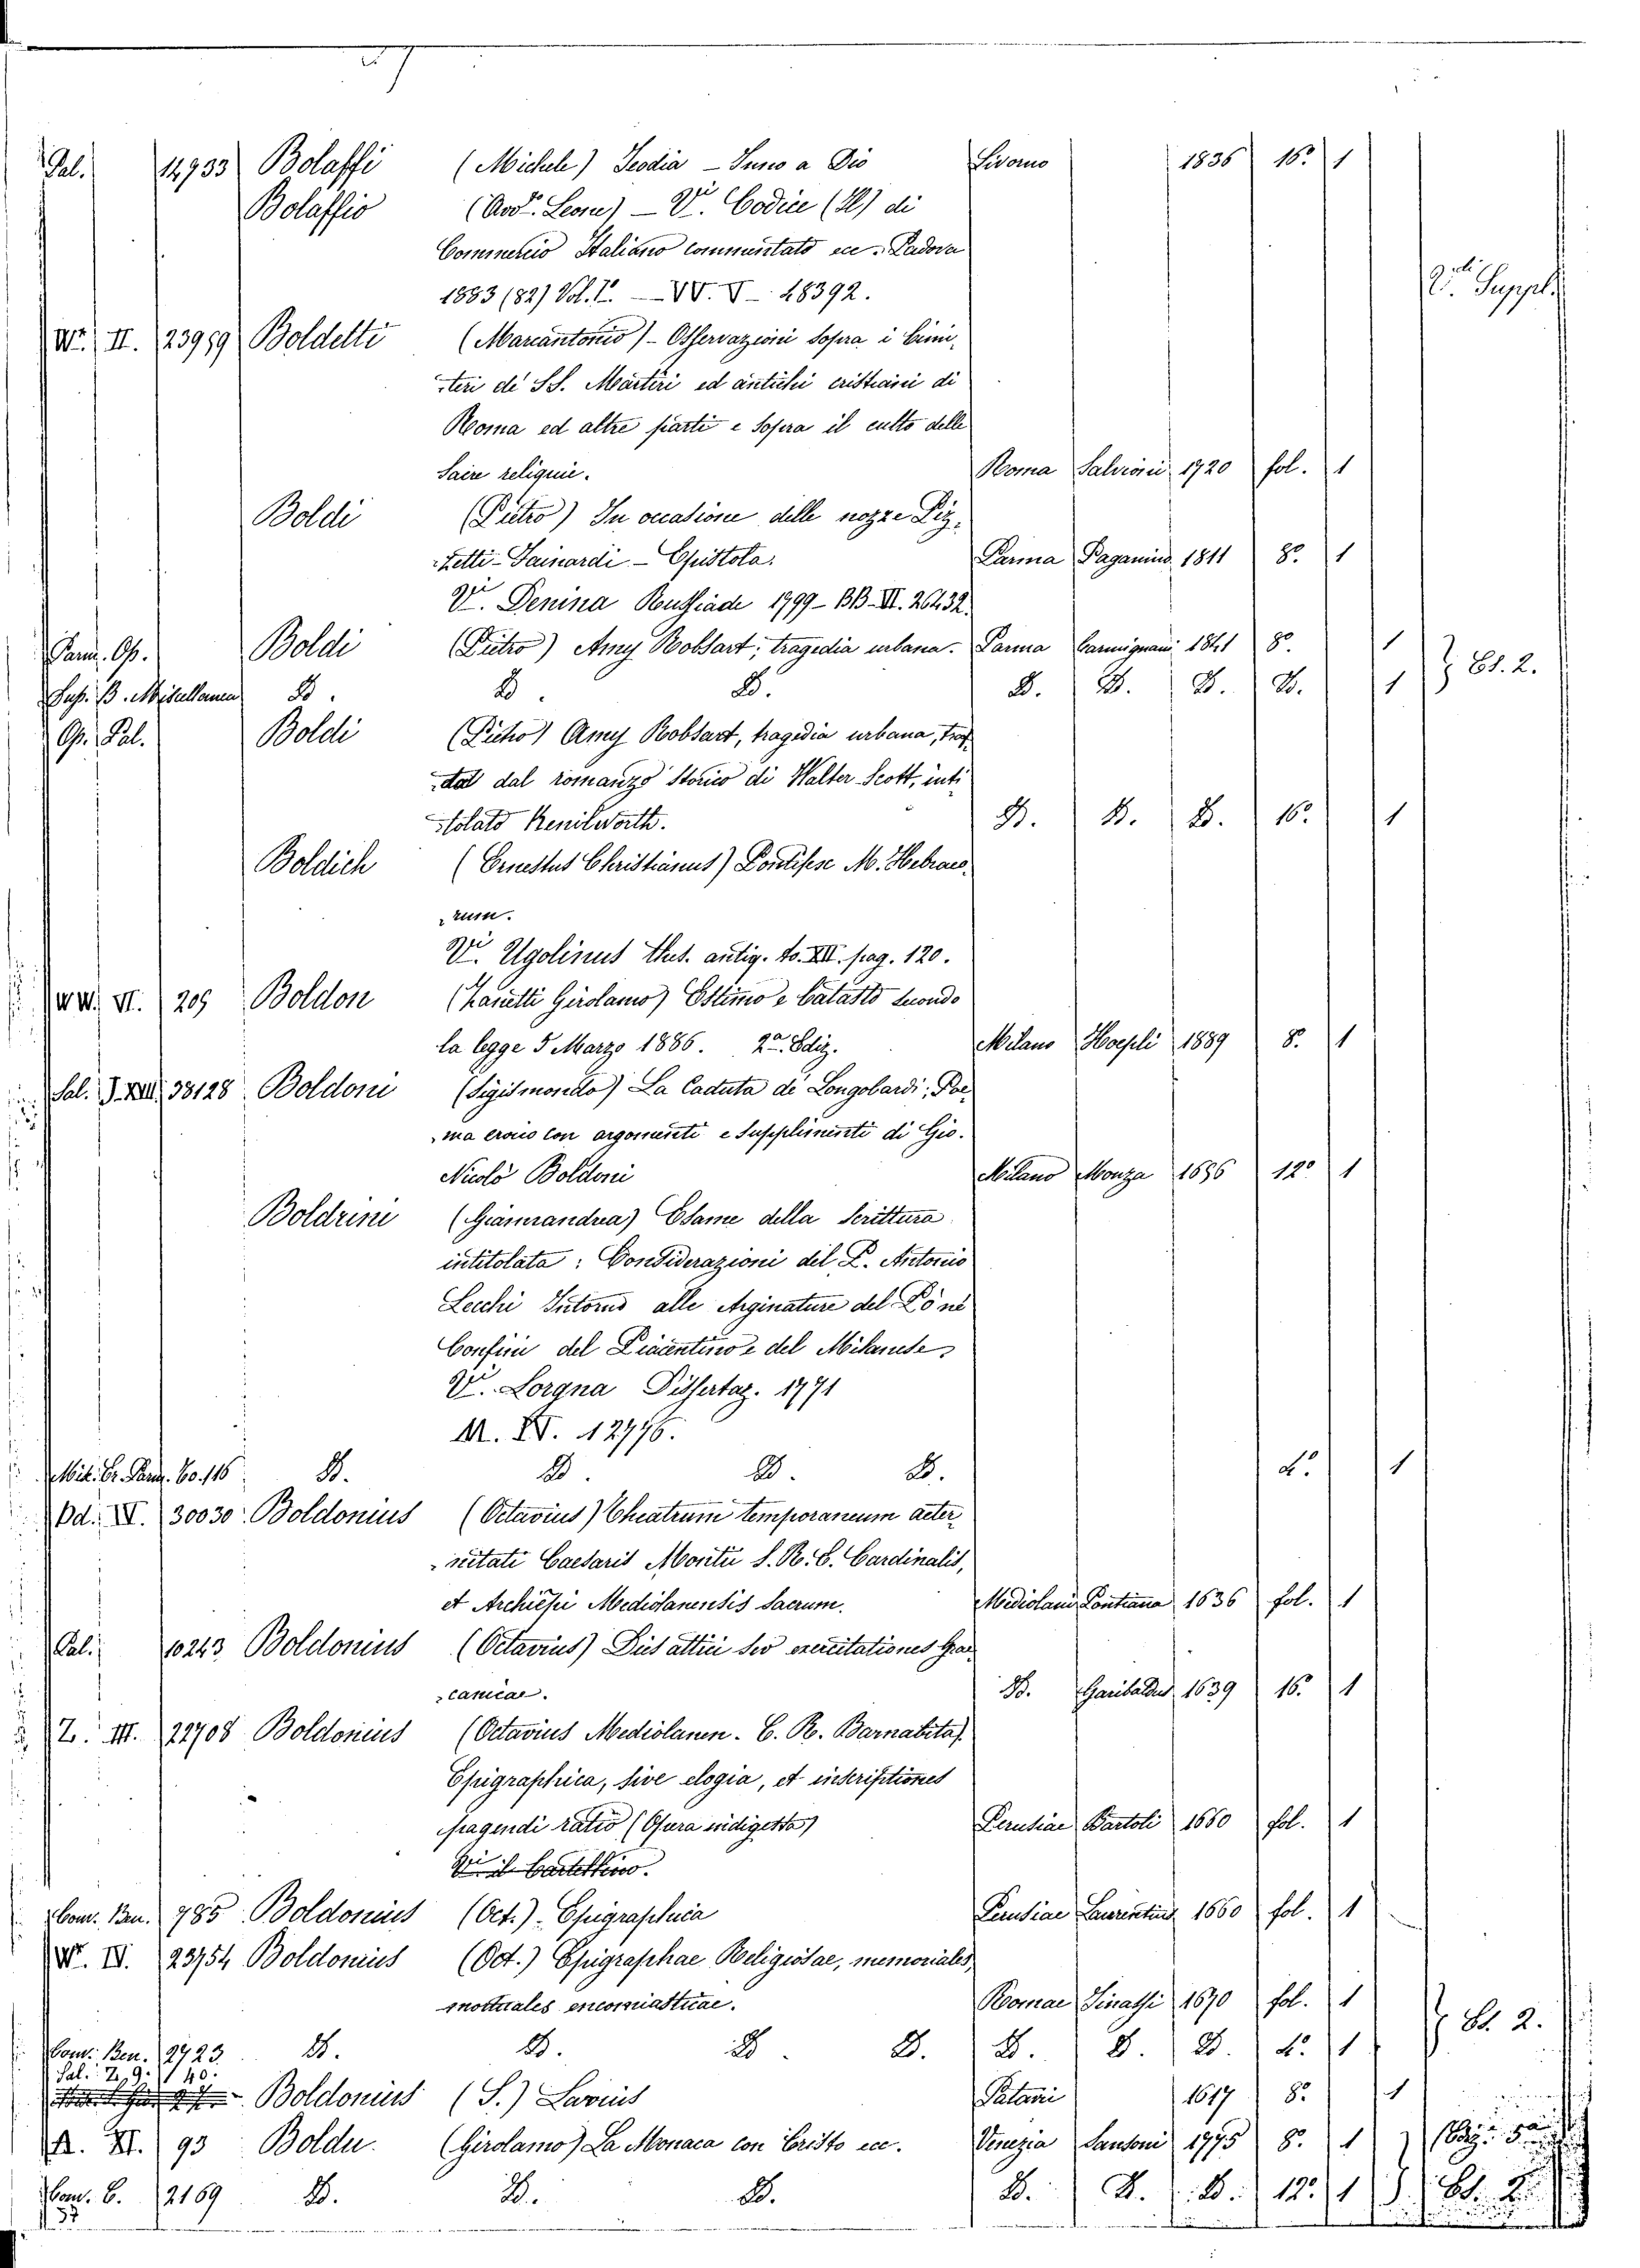 Pal. 14933 Bolaffi (Michele) Teodia - Inno a Dio Livorno 1836 16.º 1
Bolaffio (Avv.º Leone) - V.i Codice (Il) di
Commercio Italiano commentato ecc. Padova
1883 (82) Vol. I.º - VV. V - 28392. V.i Suppl.
W. II. 23959 Boldetti (Marcantonio) - Osservazioni sopra i Cimi-
teri de' SS. Martiri ed antichi cristiani di
Roma ed altre parti e sopra il culto delle
sacre reliquie. Roma Salvioni 1720 fol. 1
Boldi (Pietro) In occasione delle nozze Piz-
zetti-Sainardi - Epistola. Parma Paganino 1811 8.º 1
V.i Denina Russiade 1799 - BB. VI. 26432.
Parm. Op. Boldi (Pietro) Amy Robsart, tragedia urbana. Parma Carmignani 1841 8.º 1
Sup. B. Miscellanea D. D. D. D. D. D. D. 1 Es. 2.
Op. Pal. Boldi (Pietro) Amy Robsart, tragedia urbana, trat-
ta dal romanzo storico di Walter Scott, inti-
tolato Kenilworth. D. D. D. 16.º 1
Boldich (Ernestus Christianus) Pontifex M. Hebraeo-
rum.
V.i Ugolinus Thes. antiq. to. XII. pag. 120.
WW. VI. 209 Boldon (Zanetti Girolamo) Estimo e Catasto secondo
la legge 5 Marzo 1886. 2.a Ediz. Milano Hoepli 1889 8.º 1
Sal. J. XIII. 38128 Boldoni (Sigismondo) La Caduta de' Longobardi, Poe-
ma eroico con argomenti e supplimenti di Gio.
Nicolò Boldoni Milano Monza 1656 12.º 1
Boldrini (Giannandrea) Esame della Scrittura
intitolata: Considerazioni del P. Antonio
Lecchi Intorno alle Arginature del Pò ne'
Confini del Piacentino e del Milanese
V.i Lorgna Dissertaz. 1771
M. IV. 12776.
Mil. Cr. Parm. Co. 116 D. D. D. D. 4.º 1
Dd. IV. 30030 Boldonius (Octavius) Theatrum temporaneum aeter-
nitati Caesaris Montii S. R. E. Cardinalis,
et Archiepi Mediolanensis sacrum. Mediolani Pontiana 1636 fol. 1
Pal. 10243 Boldonius (Octavius) Dies attici seu exercitationes Grae-
canicae. D. Garibaldus 1639 16.º 1
Z. III. 22708 Boldonius (Octavius Mediolanen. C. R. Barnabita)
Epigraphica, sive elogia, et inscriptiones
pagendi ratio (Opera indigesta) Perusiae Bartoli 1660 fol. 1
V.i il Cartellino.
Com. Ben. 785 Boldonius (Oct.) - Epigraphica Perusiae Laurentius 1660 fol. 1
W. IV. 23754 Boldonius (Oct.) Epigraphae Religiosae, memoriales,
mortuales encomiasticae. Romae Tinassi 1670 fol. 1
Com. Ben. 2723 D. D. D. D. D. D. D. 4.º 1 Es. 2.
Sal. Z, 9. 140. Boldonius (S.) Larius Patavii 1617 8.º 1
A. XI. 93 Boldu. (Girolamo) La Monaca con Cristo ecc. Venezia Santoni 1775 8.º 1
Com. C. 12169 D. D. D. D. D. D. 12.º 1 Es. 2.
37